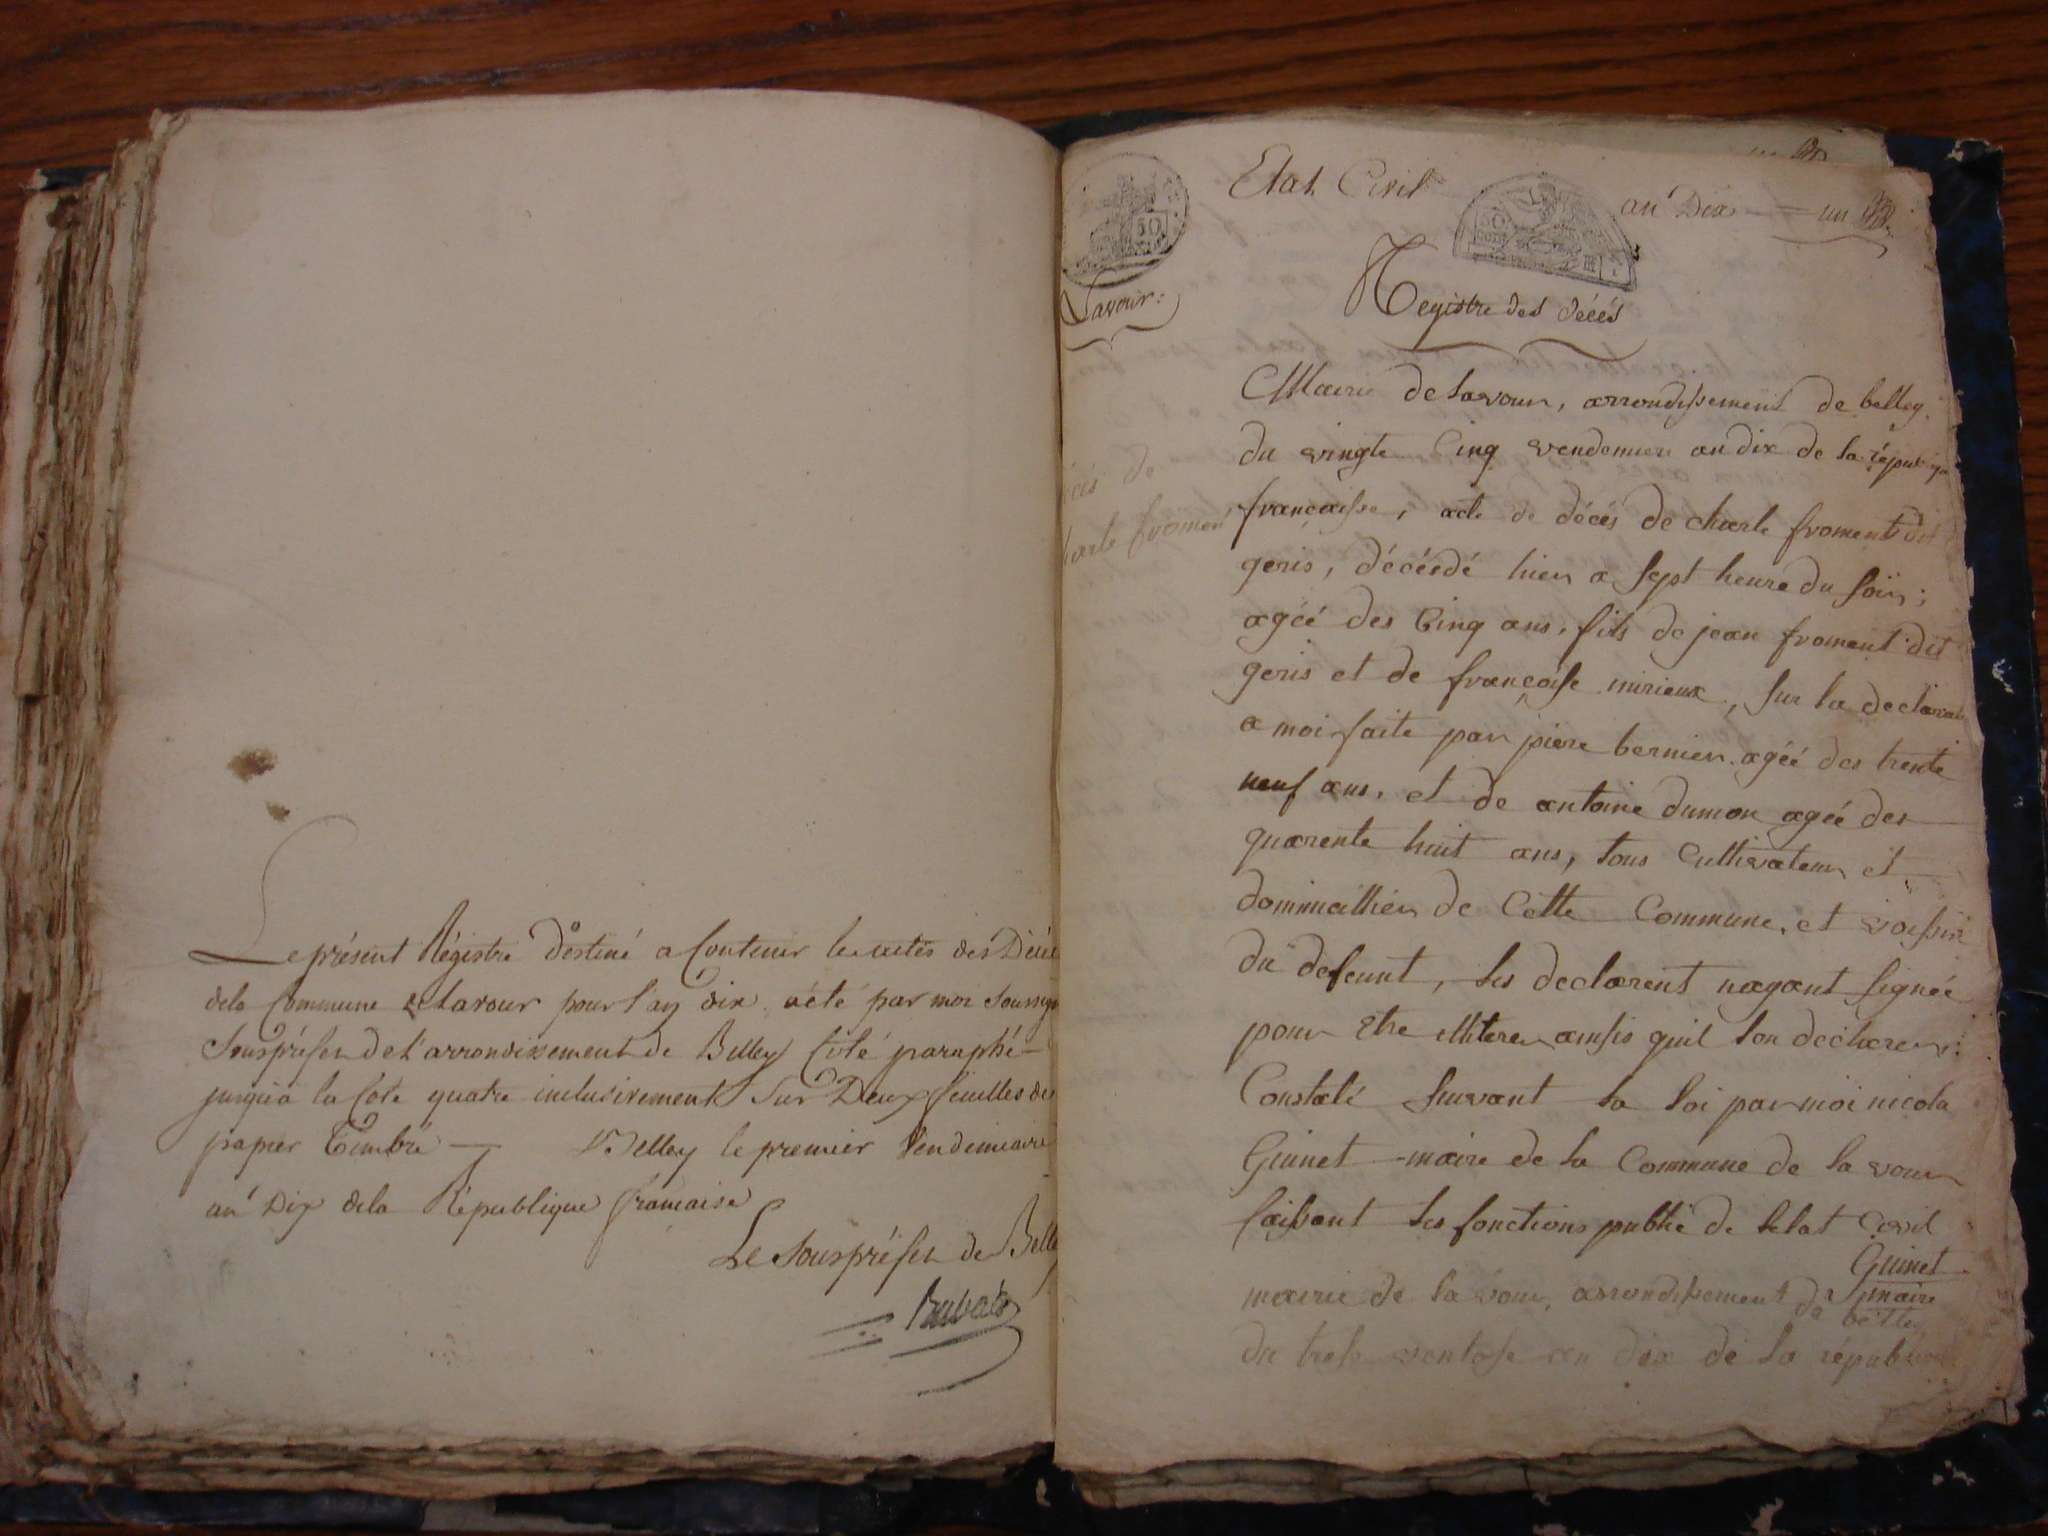 Le présent Régistre destiné a Contenir les actes des Décès
dela Commune de Lavour pour l'an dix, a été par moi Soussigné
Sousprefet de l'arrondissement de Belley Coté paraphé
jusqu'a la Cote quatre inclusivement Sur Deux feuilles de
papier Timbré — Belley le premier Vendemiaire
an Dix dela République francaise
Le Sousprefet de Belle
Etat Civil
an Dix — un
50
50
Lavour:
Registre des décés
décés de
charle froment
Mairie de lavour, arrondissement de belley.
du vingte Cinq vendemier an dix de la république
françaisse, acte de décés de charle froment dit
geris, décédé hier a sept heure du soir;
agéé des Cinq ans, fils de jean froment dit
geris et de françoise mirieux, sur la declarat
a moi faite par piere bernier agéé des trente
neuf ans, et de antoine dumon agéé des
quarente huit ans, tous Cultivateur et
dommicillier de Cette Commune, et voissin
du defeunt, les declarent nayant signée
pour etre illiterer ainsis quil lon declarer,
Constaté suivant la loi par moi nicola
Guinet maire de la Commune de la vour
faissant les fonctions publié de letat Civil
Guinet
maire
mairie de la vour, arrondissement de belley
du tresse ventosse an dix de la république